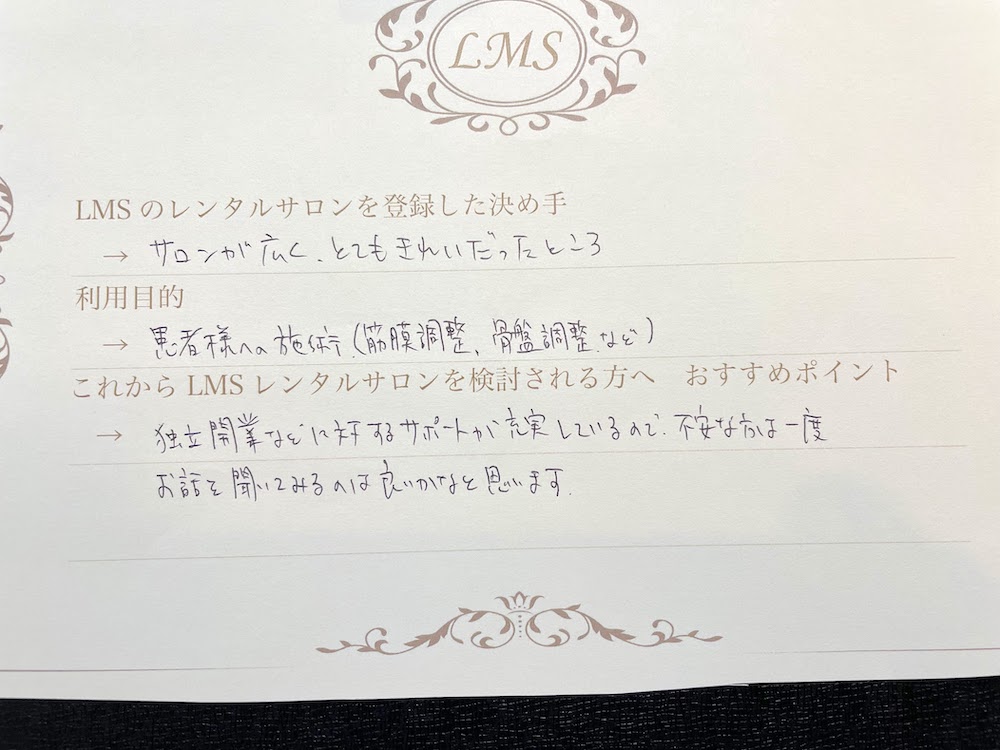 LMS
LMSのレンタルサロンを登録した決め手
→ サロンが広く、とてもきれいだったところ
利用目的
→ 患者様への施術(筋膜調整、骨盤調整など)
これからLMSレンタルサロンを検討される方へ　おすすめポイント
→ 独立開業などに対するサポートが充実しているので、不安な方は一度
お話を聞いてみるのは良いかなと思います.